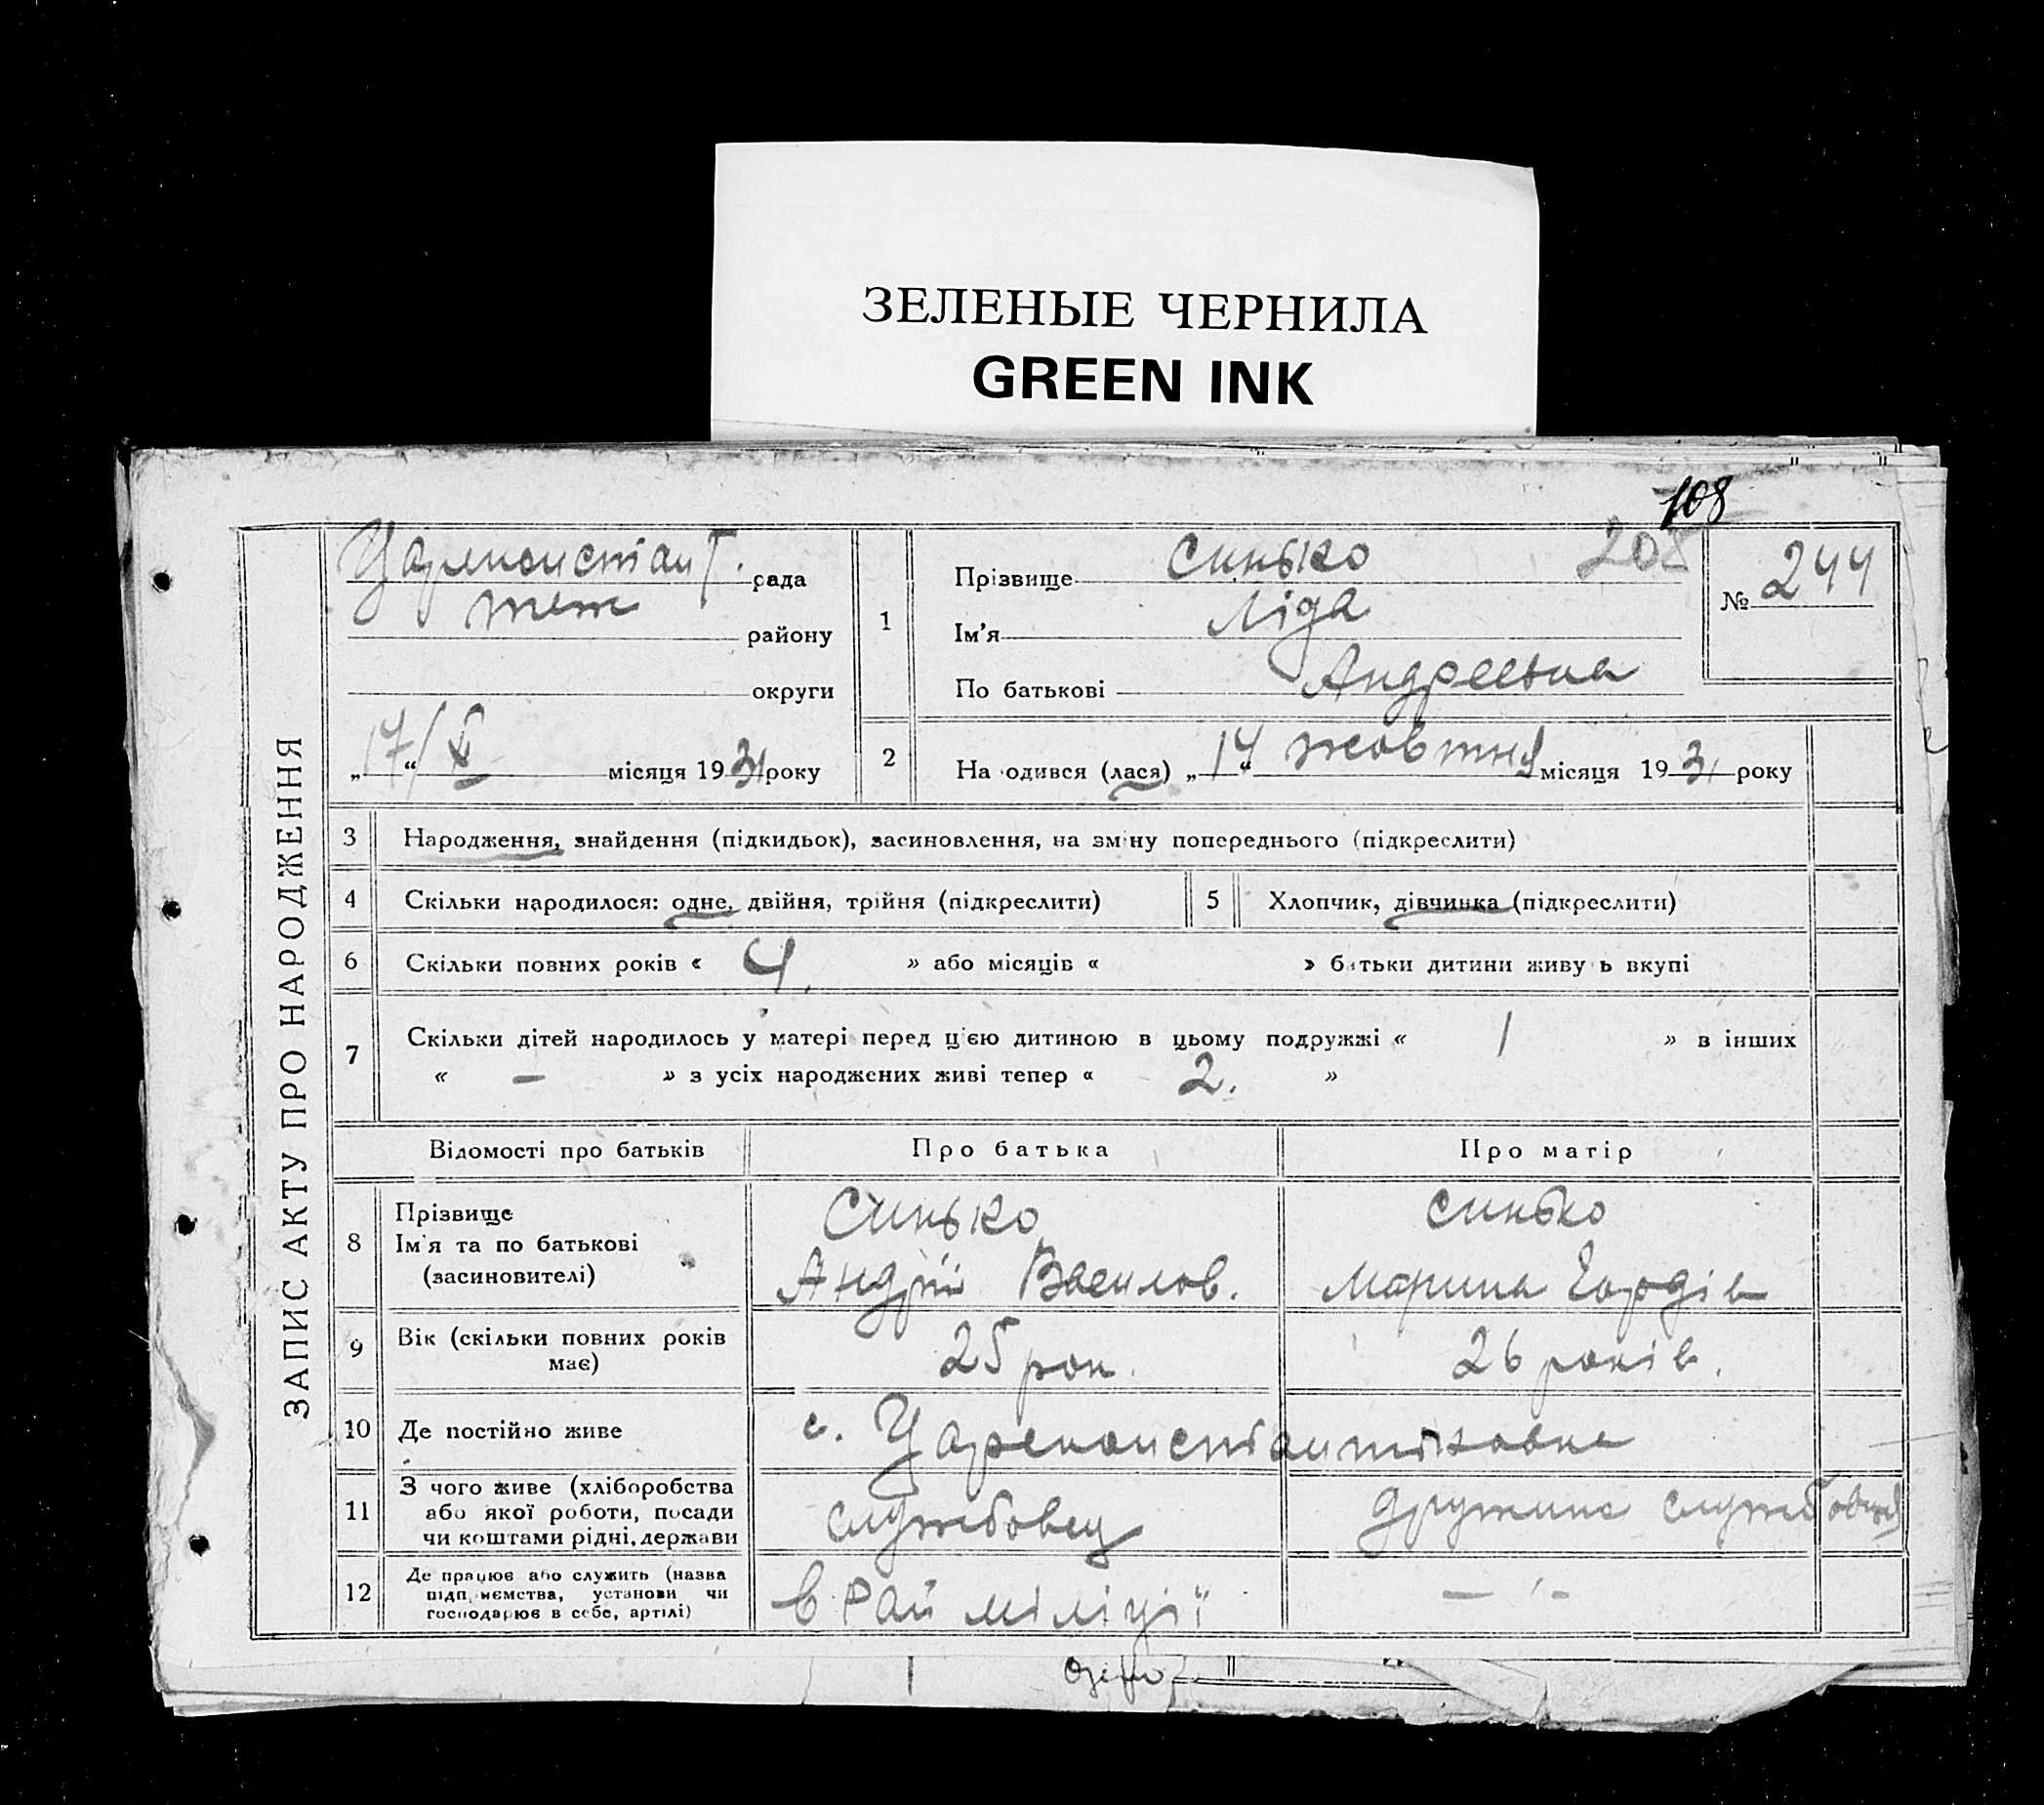 ЗЕЛЕНЫЕ ЧЕРНИЛА
GREEN INK
108
208
ЗАПИС АКТУ ПРО НАРОДЖЕННЯ
рада
теж району
округи
„17“ / X місяця 1931 року
1
Прізвище Синько
Ім'я Ліда
По батькові Андреевна
№ 244
2
На одився (лася) „14“ жовтня місяця 1931 року
3 Народження, знайдення (підкидьок), засиновлення, на зміну попереднього (підкреслити)
4 Скільки народилося: одне, двійня, трійня (підкреслити)
5 Хлопчик, дівчинка (підкреслити)
6 Скільки повних років « 4. » або місяців « » батьки дитини живуть вкупі
7 Скільки дітей народилось у матері перед цією дитиною в цьому подружжі « 1 » в інших
« — » з усіх народжених живі тепер « 2. »
Відомості про батьків Про батька Про матір
8 Прізвище
Ім'я та по батькові
(засиновителі)
Синько
Андрій Василов.
Синько
Марина Гордів
9 Вік (скільки повних років
має)
25 рок.
26 років.
10 Де постійно живе
с. Цареконстантіновка
11 З чого живе (хліборобства
або якої роботи, посади
чи коштами рідні, держави
службовец
дружина службовця
12 Де працює або служить (назва
підприємства, установи чи
господарює в себе, артілі)
в Рай міліції
— " —